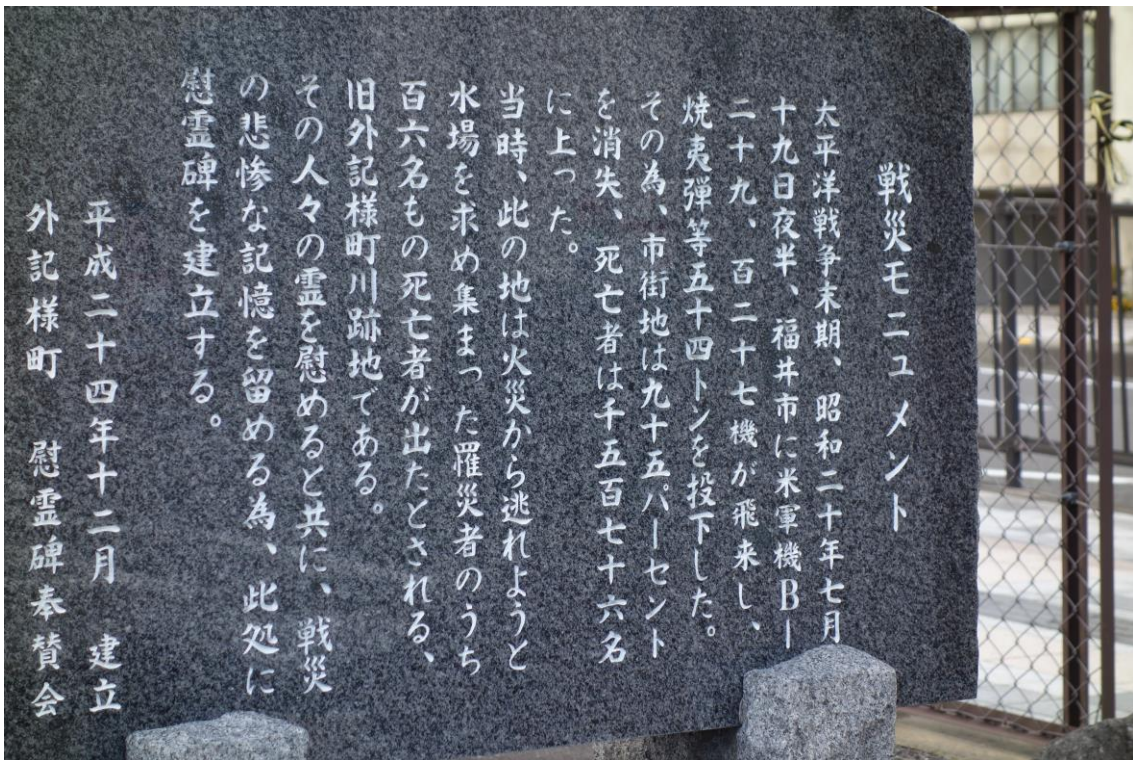 戦災モニュメント
太平洋戦争末期、昭和二十年七月
十九日夜半、福井市に米軍機B－
二十九、百二十七機が飛来し、
焼夷弾等五十四トンを投下した。
その為、市街地は九十五パーセント
を消失、死亡者は千五百七十六名
に上った。
当時、此の地は火災から逃れようと
水場を求め集まった罹災者のうち
百六名もの死亡者が出たとされる、
旧外記様町川跡地である。
その人々の霊を慰めると共に、戦災
の悲惨な記憶を留める為、此処に
慰霊碑を建立する。
平成二十四年十二月 建立
外記様町 慰霊碑奉賛会